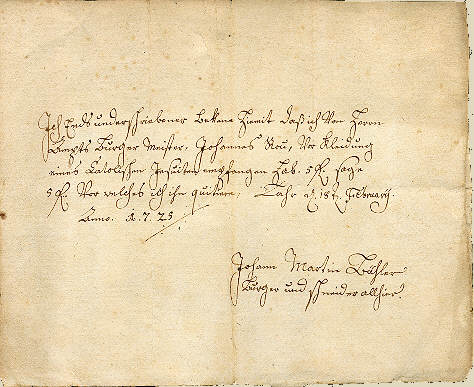 Ich Ends underschriebener Bekene Hiemit daß ich Von Herrn
Ampts Burger Meister, Johannes Rou, Vor Kleidung
eines Catolischen Jesuiten empfangen hab. 5 fl. sage
5 fl. Vor welches ich ihn quitiere. d. 18 t. Februarij.
Anno. 1.7.25
Johann Martin Bühler
Burger und schneider allhier.